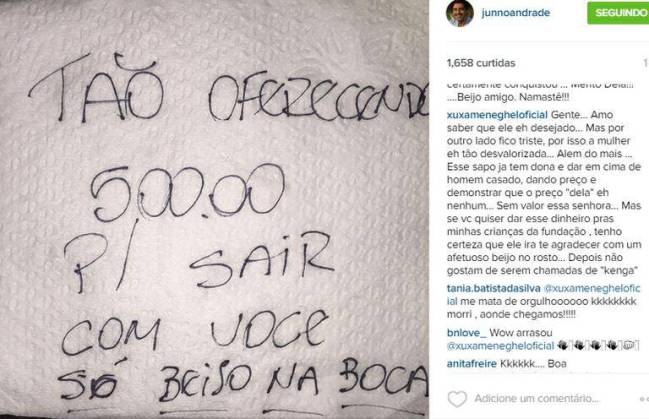 TAÕ OFEREZECENDO
500.00
P/ SAIR
COM VOCE
SÓ BEISO NA BOCA
junnoandrade
SEGUINDO
1,658 curtidas
1
certamente conquistou ... Mérito Dela!!!
....Beijo amigo. Namastê!!!
xuxamenegheloficial Gente... Amo
saber que ele eh desejado... Mas por
outro lado fico triste, por isso a mulher
eh tão desvalorizada... Alem do mais ...
Esse sapo ja tem dona e dar em cima de
homem casado, dando preço e
demonstrar que o preço "dela" eh
nenhum... Sem valor essa senhora... Mas
se vc quiser dar esse dinheiro pras
minhas crianças da fundação , tenho
certeza que ele ira te agradecer com um
afetuoso beijo no rosto... Depois não
gostam de serem chamadas de "kenga"
tania.batistadasilva @xuxamenegheloficial
ial me mata de orgulhoooooo kkkkkkkk
morri , aonde chegamos!!!!!
bnlove_ Wow arrasou
@xuxamenegheloficial
anitafreire Kkkkkk.... Boa
Adicione um comentário...